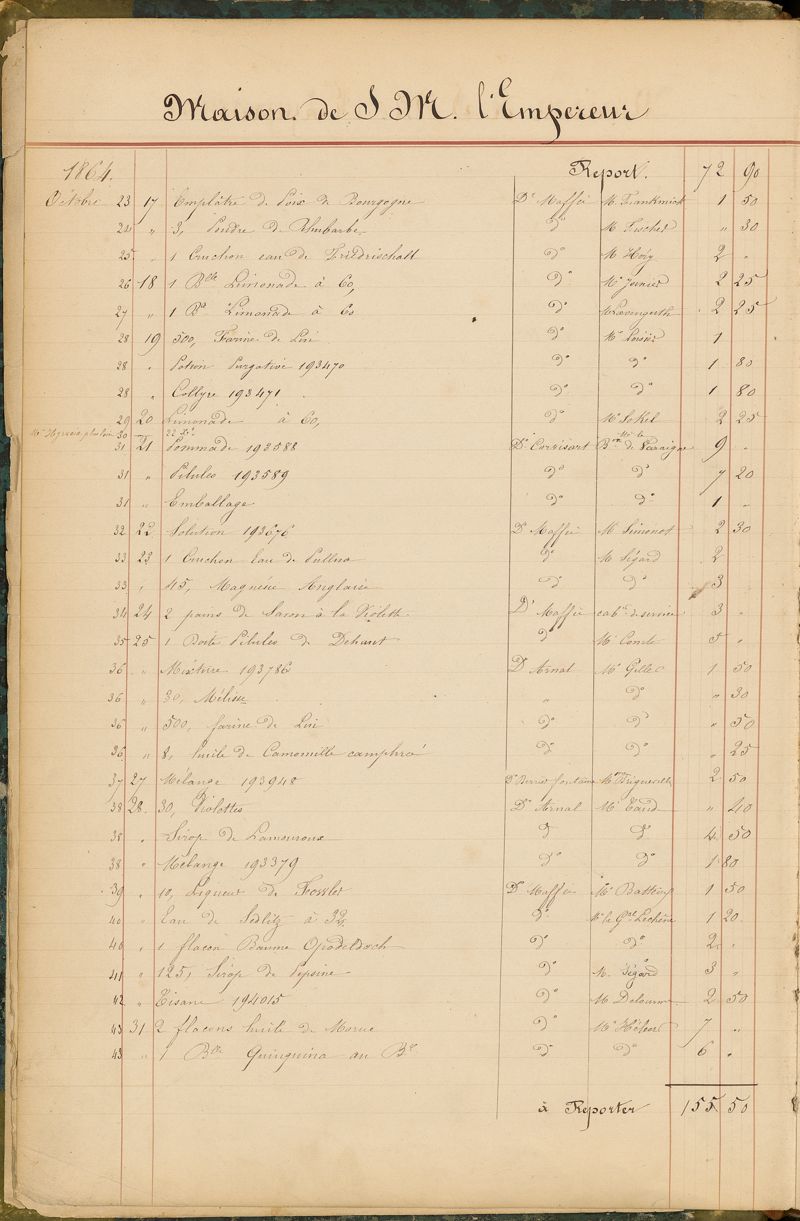 Maison de S M. l'Empereur
1864. Report. 72 90
Octobre 23 17 Emplâtre de Poix de Bourgogne Dr Maffei Mr Frankmick 1 50
24 " 3, Poudre de Rhubarbe do Mr Fischer " 30
25 " 1 Cruchon eau de Friedrischall do Mr Héry 2 "
26 18 1 Blle Limonade à 60, do Mr Jeunier 2 25
27 " 1 Be Limonade à 60 do 2 25
28 19 500, Farine de Lin do Mr 1
28 " Potion Purgative 193470 do do 1 80
28 " Collyre 193471 do do 1 80
29 20 Limonade à 60, do Mr Sokel 2 25
30
31 21 Pommade 193588 Dr Corvisart Bne de 9 "
31 " Pilules 193589 do do 7 20
31 " Emballage do do 1 "
32 22 Solution 193676 Dr Maffei Mr Simonot 2 30
33 23 1 Cruchon Eau de Pullna do Mr Ségard 2
33 " 45, Magnésie Anglaise do do 3
34 24 2 pains de Savon à la Violette Dr Maffei cabt de service 3 "
35 25 1 Boite Pilules de Dehaut do Mr Comte 5 "
36 " Mixture 193786 Dr Arnal Mr Gilles 1 50
36 " 30, Mélisse " do " 30
36 " 500, farine de Lin do do " 50
36 " 8, huile de Camomille camphrée do do " 25
37 27 Mélange 193948 Dr fontaine Mr Trigueville 2 50
38 28 30, Violettes Dr Arnal Mr " 40
38 " Sirop de Lamouroux do do 4 50
38 " Mélange 193379 do do 1 80
39 " 10, Liqueur de Dr Maffei Mr 1 50
40 " Eau de Sedlitz à 32 do Mr le Gal Lechêne 1 20
40 " 1 flacon Baume Opodeldoch do do 2 "
41 " 125, Sirop de Pepsine do Mr Ségard 3 "
42 " Tisane 194015 do Mr Delaunne 2 50
43 31 2 flacons huile de Morue do Mr Hébert 7 "
43 " 1 Blle Quinquina au Bx do do 6 "
à Reporter 155 50